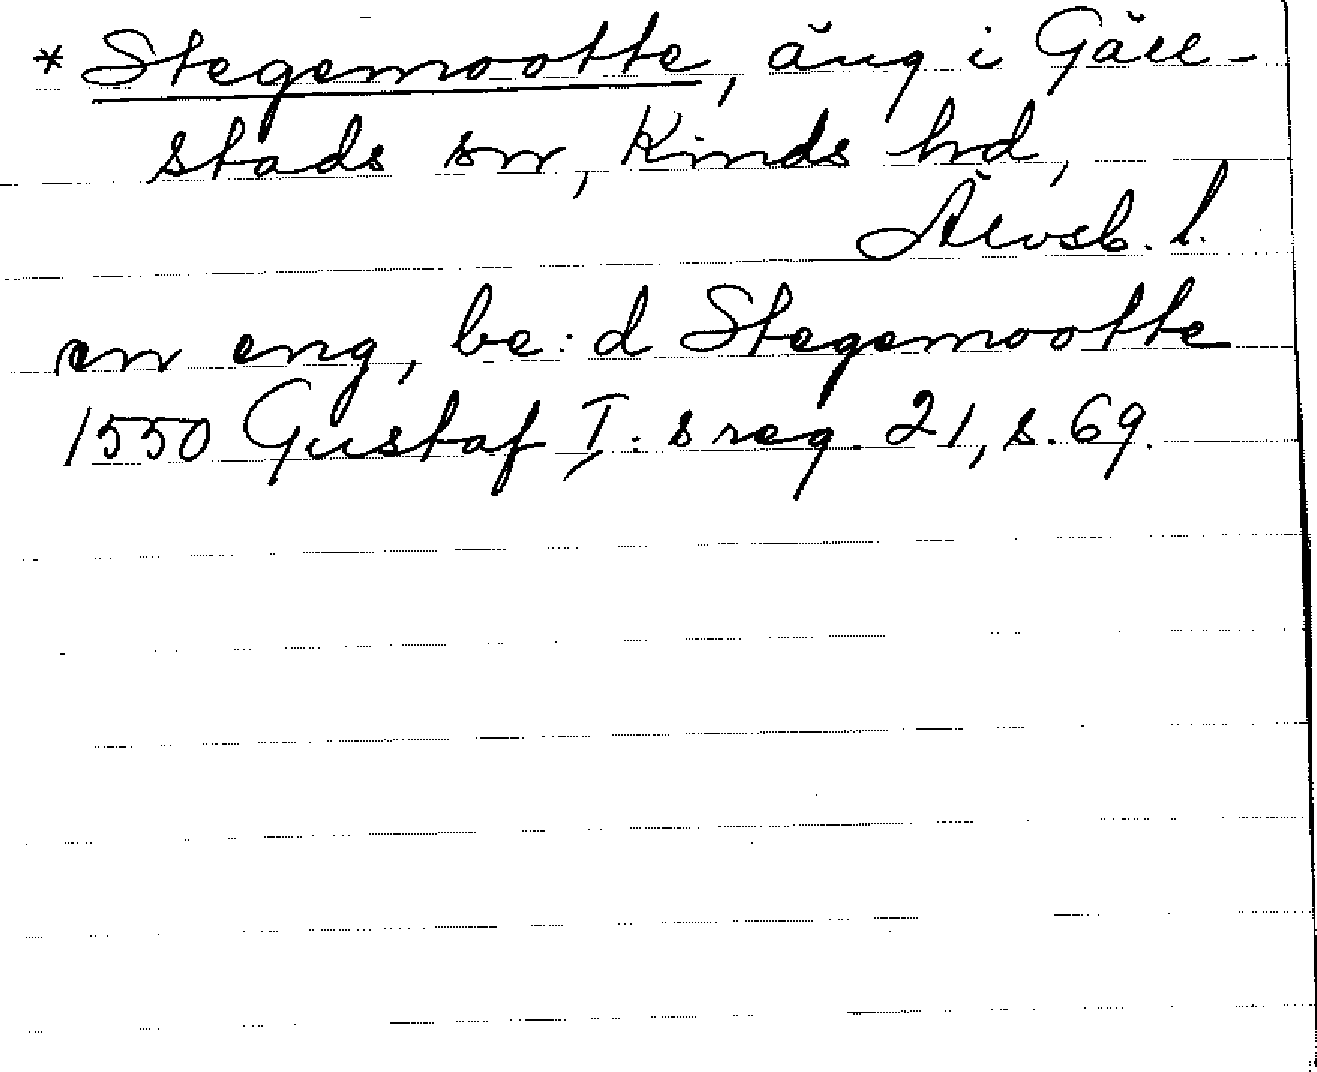 * Stegemootte, äng i Gäll-
stads sn, Kinds hd,
Älvsb. l.
en eng, be:d Stegemootte
1550 Gustaf I:s reg. 21, s. 69.